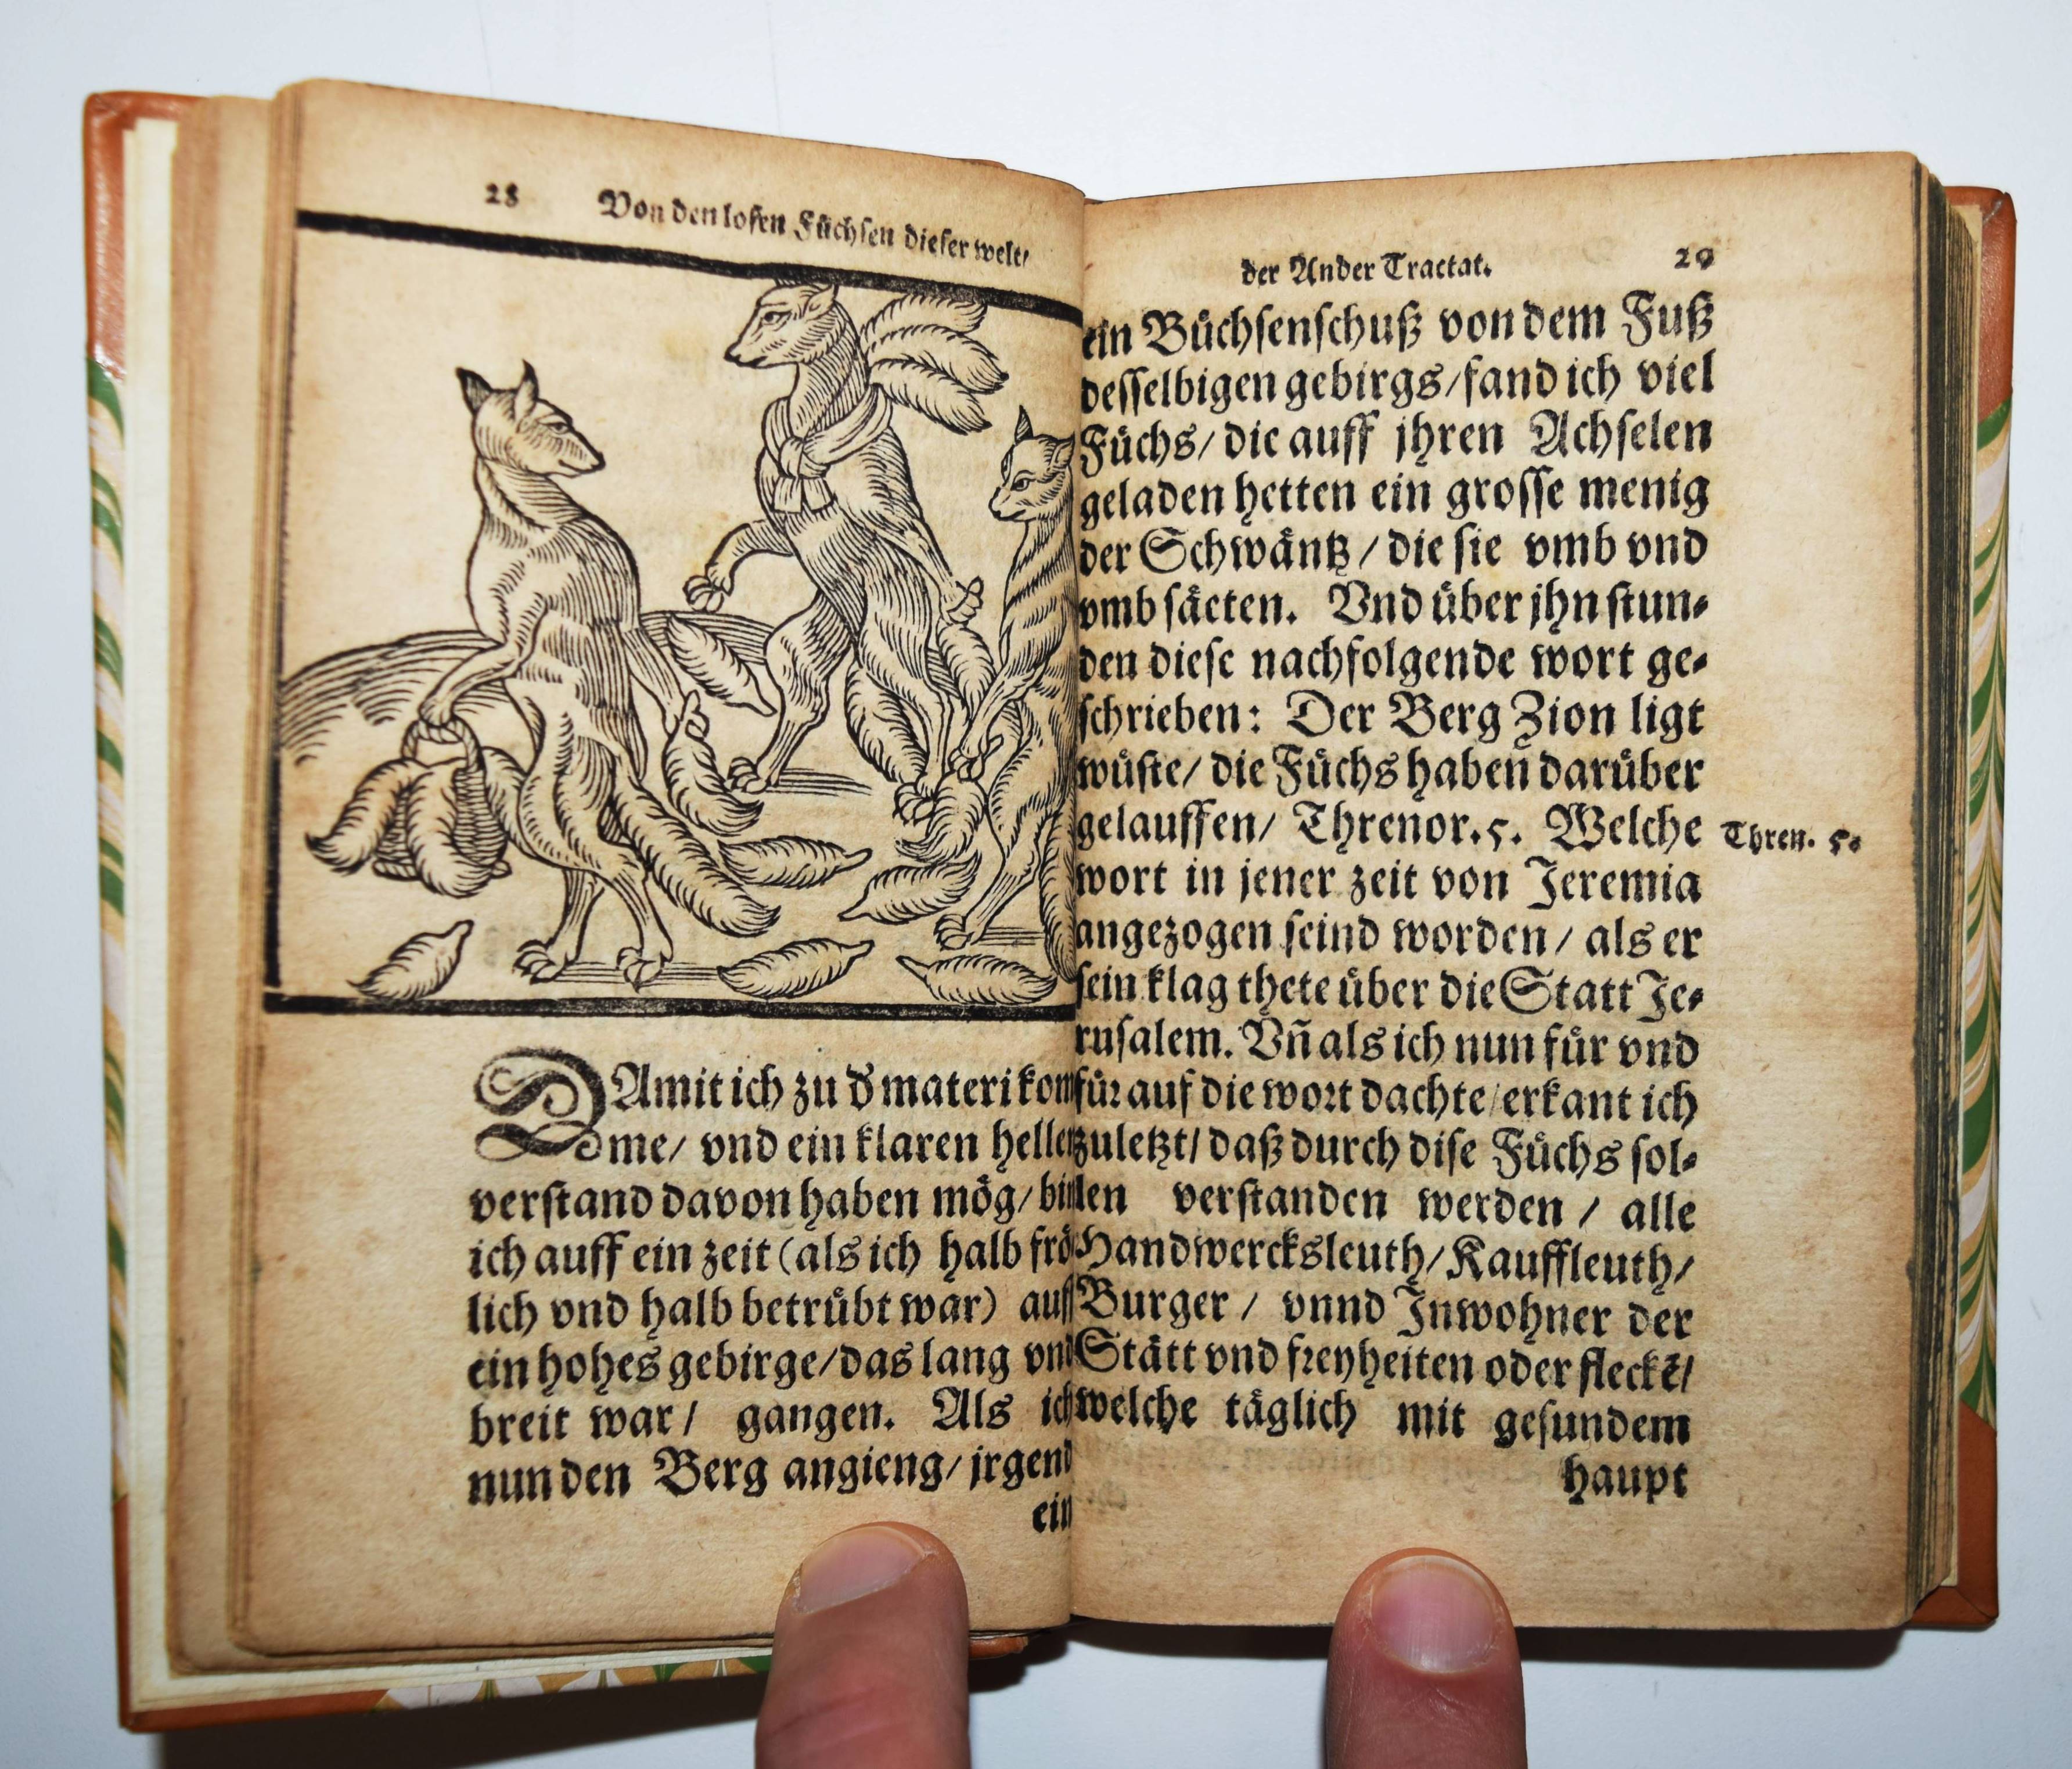 28 Von den losen Füchsen dieser welt/
DAmit ich zu d' materi kom
me/ vnd ein klaren hellen
verstand davon haben mög/ bin
ich auff ein zeit (als ich halb frö
lich vnd halb betrübt war) auff
ein hohes gebirge/ das lang vnd
breit war/ gangen. Als ich
nun den Berg angieng/ jrgend
ein
der Ander Tractat. 29
ein Büchsenschuß von dem Fuß
desselbigen gebirgs/ fand ich viel
Füchs/ die auff jhren Achselen
geladen hetten ein grosse menig
der Schwäntz/ die sie vmb vnd
vmb säeten. Vnd über jhn stun⸗
den diese nachfolgende wort ge⸗
schrieben: Der Berg Zion ligt
wüste/ die Füchs haben darüber
gelauffen/ Threnor. 5. Welche
Thren. 5.
wort in jener zeit von Jeremia
angezogen seind worden/ als er
sein klag thete über die Statt Je⸗
rusalem. Vñ als ich nun für vnd
für auf die wort dachte/ erkant ich
zuletzt/ daß durch dise Füchs sol⸗
len verstanden werden/ alle
Handwercksleuth/ Kauffleuth/
Burger/ vnnd Inwohner der
Stätt vnd freyheiten oder fleckē/
welche täglich mit gesundem
haupt